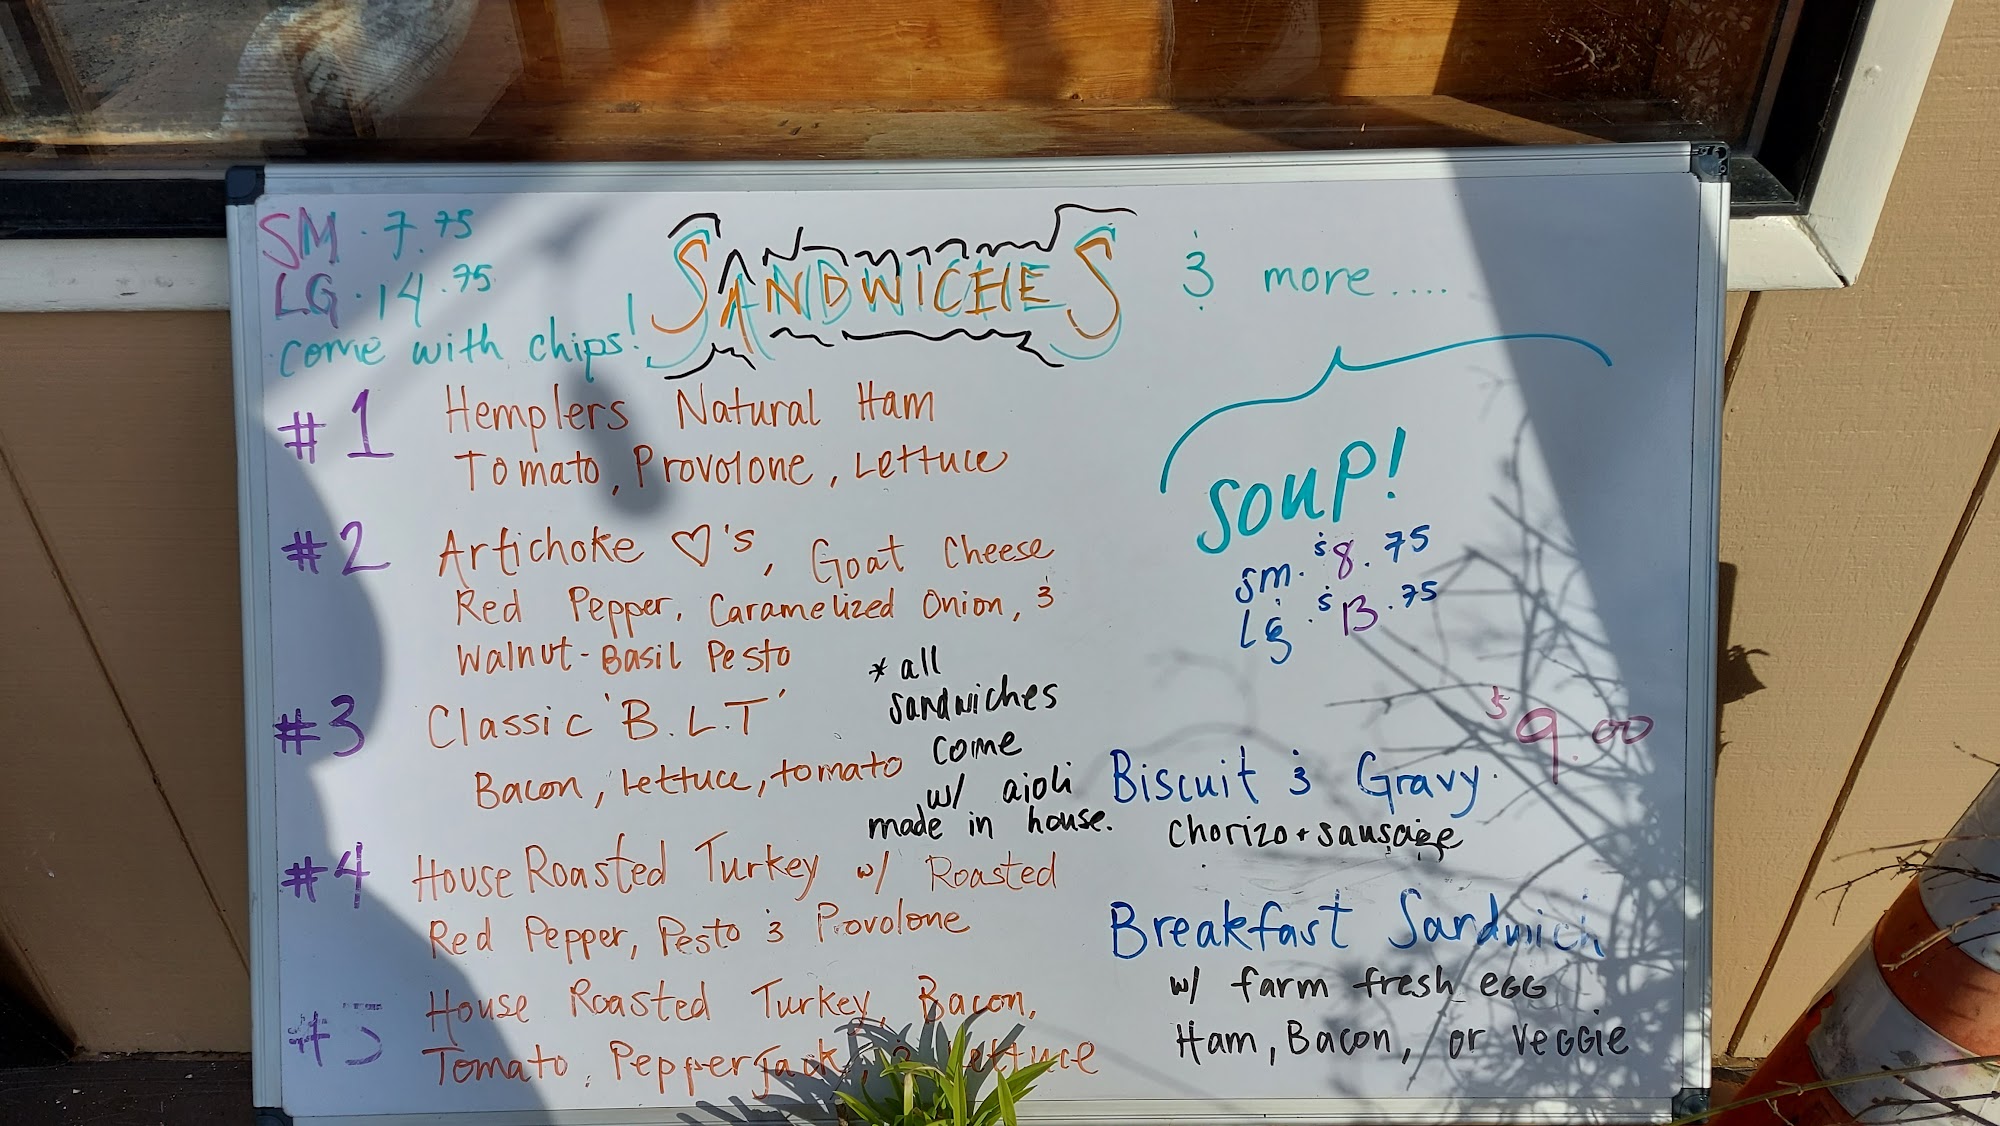 SM. 7.75
LG. 14.75
come with chips!
SANDWICHES & more....
#1 Hemplers Natural Ham
Tomato, Provolone, Lettuce
#2 Artichoke ♡'s, Goat Cheese
Red Pepper, Caramelized Onion, &
Walnut-Basil Pesto
#3 Classic 'B.L.T'
Bacon, Lettuce, tomato
* all
sandwiches
come
w/ aioli
made in house.
#4 House Roasted Turkey w/ Roasted
Red Pepper, Pesto & Provolone
#5 House Roasted Turkey, Bacon,
Tomato, Pepper Jack, & Lettuce
Soup!
sm. $8.75
LG. $13.75
$9.00
Biscuit & Gravy.
Chorizo + sausage
Breakfast Sandwich
w/ farm fresh egg
Ham, Bacon, or Veggie